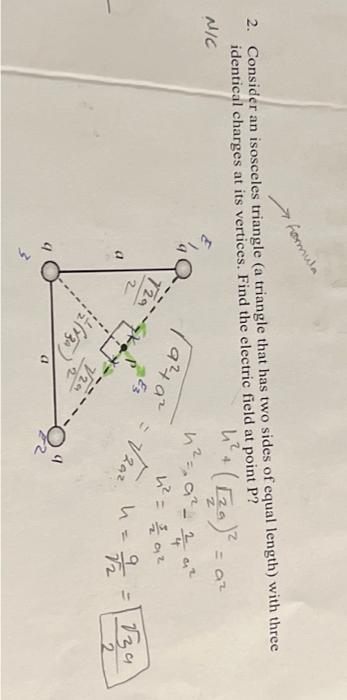 → formula
2. Consider an isosceles triangle (a triangle that has two sides of equal length) with three
identical charges at its vertices. Find the electric field at point P?
N/C
E1
q
√2a/2
a
P
E3
1/2(√3a)
√2a/2
q
3
a
q
E2
√a²+a² = √2a²
h² + (√2a/2)² = a²
h² = a² - 2/4 a²
h² = 3/2 a²
h = a/√2 = √3a/2